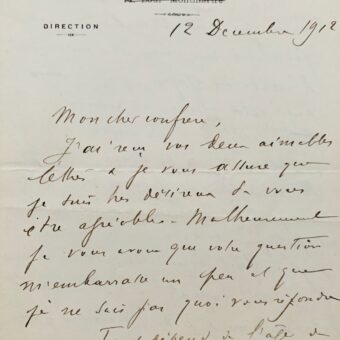 DIRECTION
12 Decembre 1912
Mon cher confrere,
J'ai reçu vos deux aimables
lettres & je vous assure que
je suis très désireux de vous
être agréable. Malheureusement
je vous avoue que votre question
m'embarrasse un peu et que
je ne sais pas quoi vous répondre
dépend de l'âge de